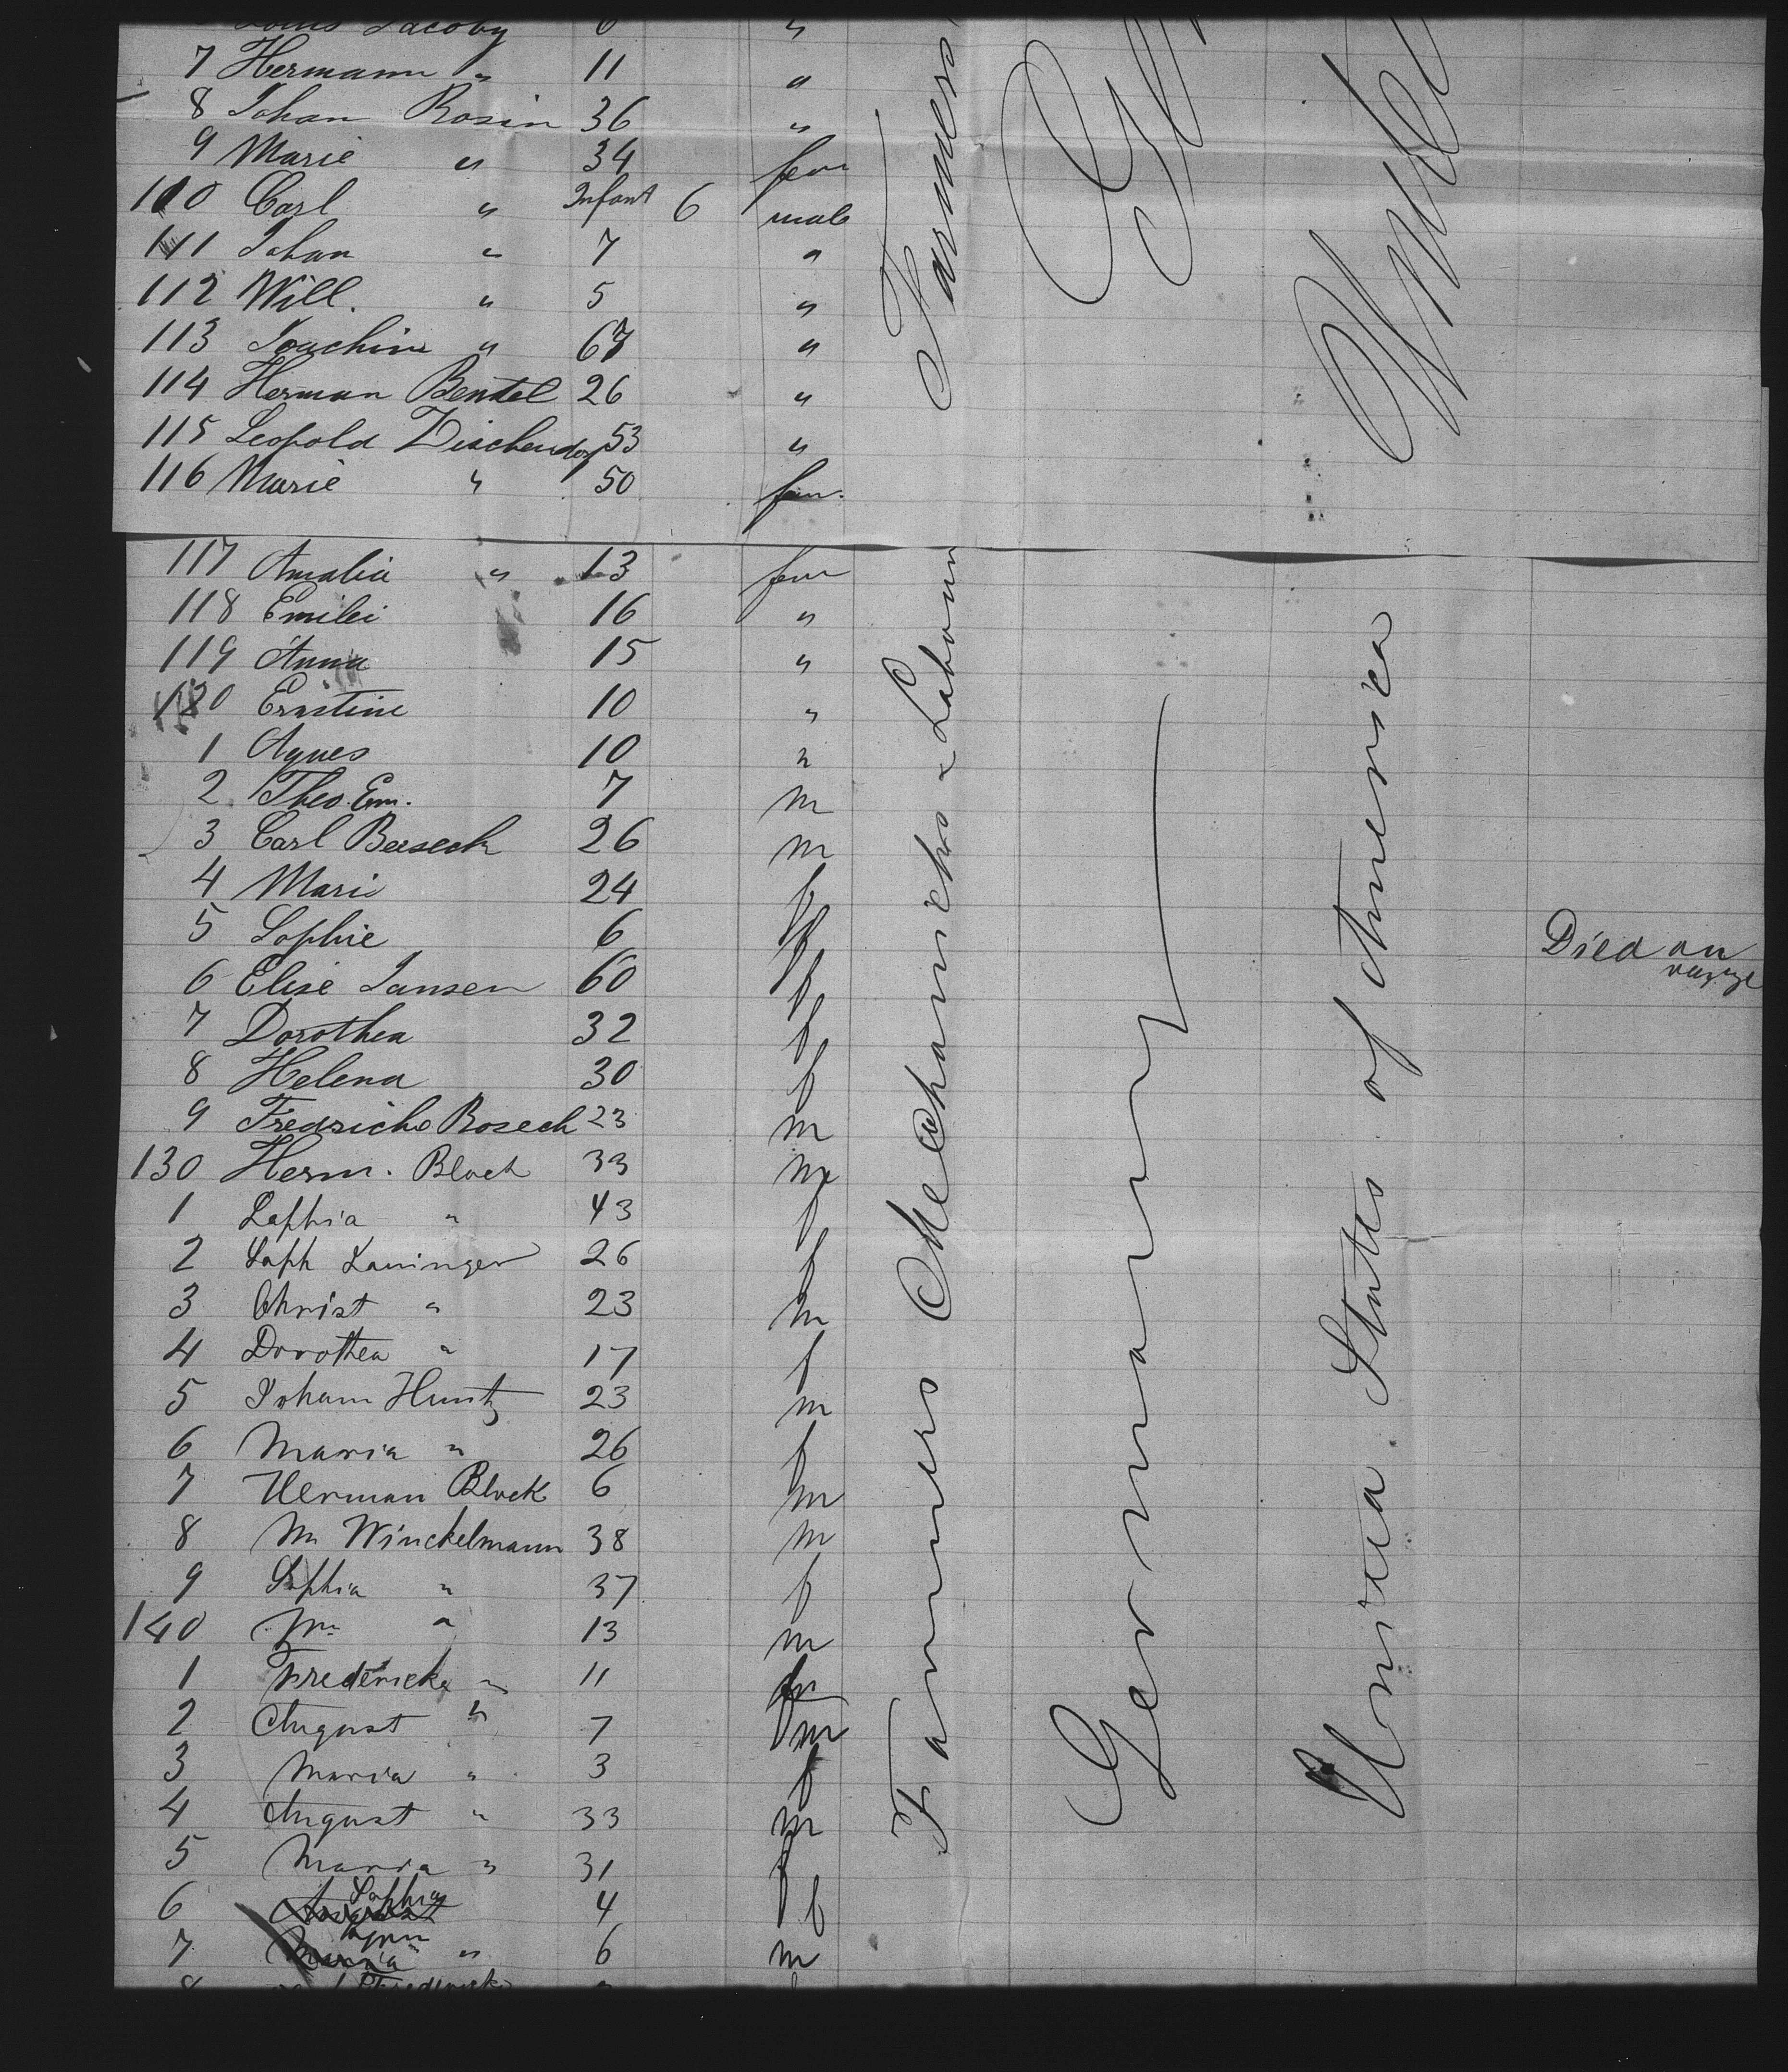 Louis Jacoby 6 "
7 Hermann " 11 "
8 Johan Rosin 36 "
9 Marie " 34 fem
110 Carl " Infant 6 male
111 Johan " 7 "
112 Will. " 5 "
113 Joachim " 67 "
114 Herman Bentel 26 "
115 Leopold Dischendorf 53 "
116 Marie " 50 fem.
Farmers
117 Amalia " 13 fem
118 Emilei 16 "
119 Anna 15 "
120 Ernstine 10 "
1 Agnes 10 "
2 Theo. Em. 7 m
3 Carl Beseck 26 m
4 Mari 24 f
5 Sophie 6 f Died on voyage
6 Elise Jansen 60 f
7 Dorothea 32 f
8 Helena 30 f
9 Fredricke Roseck 23 m
130 Herm. Block 33 m
1 Sophia " 43 f
2 Soph Laninger 26 f
3 Christ " 23 m
4 Dorothea " 17 f
5 Joham Huntz 23 m
6 Maria " 26 f
7 Herman Block 6 m
8 Wm Winckelmann 38 m
9 Sophia " 37 f
140 Wm " 13 m
1 Fredericke " 11
2 August " 7 m
3 Maria " 3 f
4 August " 33 m
5 Maria " 31 f
6 August Sophia 4 f
7 Maria " 6 m
8 Frederick
Farmers Mechanicks & Labourn
Germany
United States of America